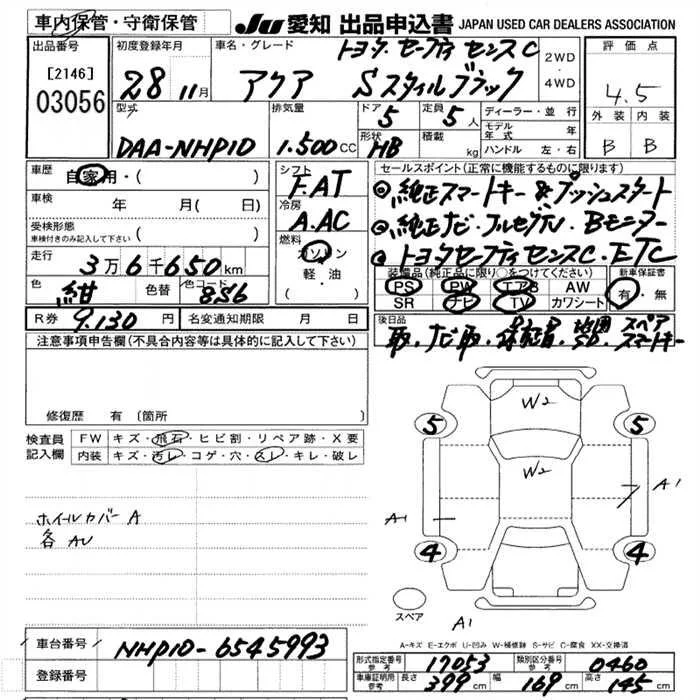 車内保管・守衛保管
JU 愛知 出品申込書 JAPAN USED CAR DEALERS ASSOCIATION
出品番号 [2146] 03056
初度登録年月 28 11月
車名・グレード トヨタ セーフティセンスC
アクア Sスタイルブラック
2WD・4WD
評価点 4.5
外装 B 内装 B
型式 DAA-NHP10
排気量 1.500cc
ドア 5
定員 5人
形状 HB
積載 kg
ディーラー・並行
モデル年式 年
ハンドル 左・右
車歴 自家用・( )
車検 年 月( 日)
受検形態
車検付きのみ記入して下さい ( )
走行 3万6千650km
色 紺 色替 色コード 8S6
R券 9.130円 名変通知期限 月 日
シフト F.AT
冷房 A.AC
燃料 ガソリン
軽・油
( )
セールスポイント(正常に機能するものに限ります)
◎純正スマートキー&プッシュスタート
◎純正ナビ・フルセグTV・Bモニター
◎トヨタセーフティセンスC・ETC
装備品(純正品に限り○をつけてください) 新車保証書
PS PW エアB AW 有・無
SR ナビ TV カワシート
後日品 取.ナビ取.保証書.地図SD.スペアスマートキー
注意事項申告欄(不具合内容等は具体的に記入して下さい)
修復歴 有 (箇所 )
検査員記入欄 FW キズ・飛石・ヒビ割・リペア跡・X要
内装 キズ・汚レ・コゲ・穴・スレ・キレ・破レ
ホイルカバー A
各 AU
W2
W2
5 5
A1
A1
4 4
スペア
A1
A-キズ E-エクボ U-凹み W-補修跡 S-サビ C-腐食 XX-交換済
車台番号 NHP10-6545993
登録番号
形式指定番号 参考 17053 類別区分番号 参考 0460
車庫証明用 参考 長さ 399cm 幅 169cm 高さ 145cm